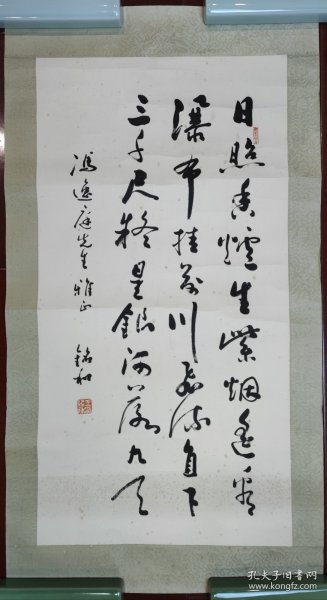 日照香炉生紫烟遥看
瀑布挂前川飞流直下
三千尺疑是银河落九天
冯逸庭先生雅正
铭和
孔夫子旧书网
www.kongfz.com